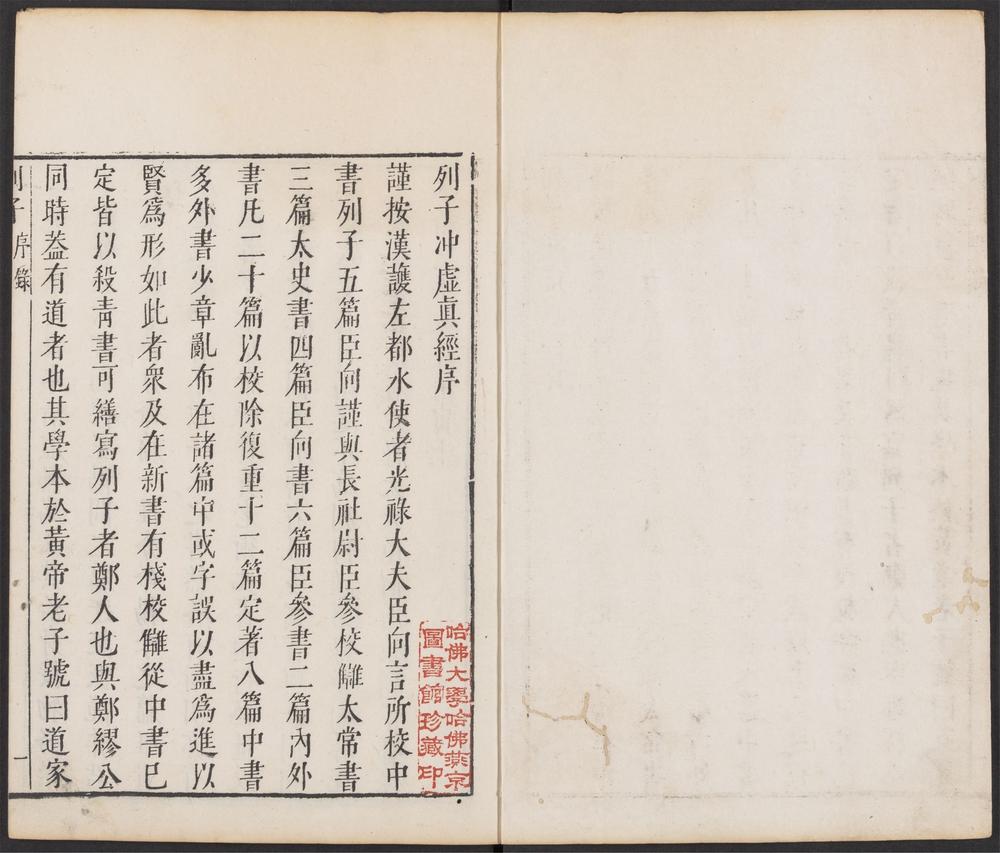 列子冲虛眞經序
謹按漢護左都水使者光祿大夫臣向言所校中
書列子五篇臣向謹與長社尉臣參校讎太常書
三篇太史書四篇臣向書六篇臣參書二篇內外
書凡二十篇以校除復重十二篇定著八篇中書
多外書少章亂布在諸篇中或字誤以盡爲進以
賢爲形如此者衆及在新書有棧校讎從中書已
定皆以殺靑書可繕寫列子者鄭人也與鄭繆公
同時葢有道者也其學本於黃帝老子號曰道家
列子 序錄 一
哈佛大學哈佛燕京
圖書館珍藏印